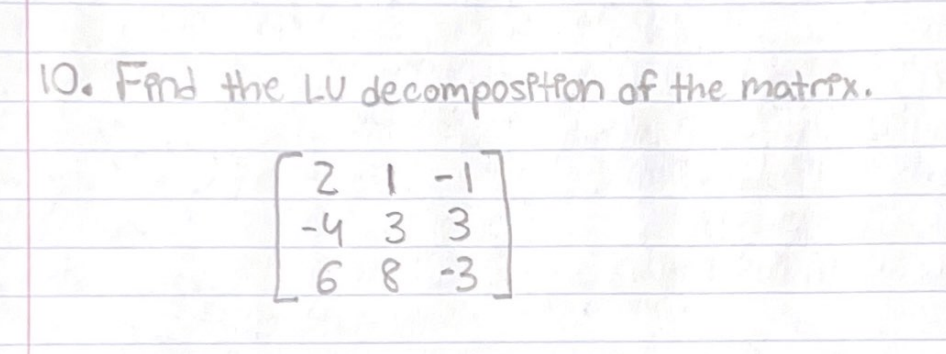 10. Find the LU decomposition of the matrix.
2 1 -1
-4 3 3
6 8 -3